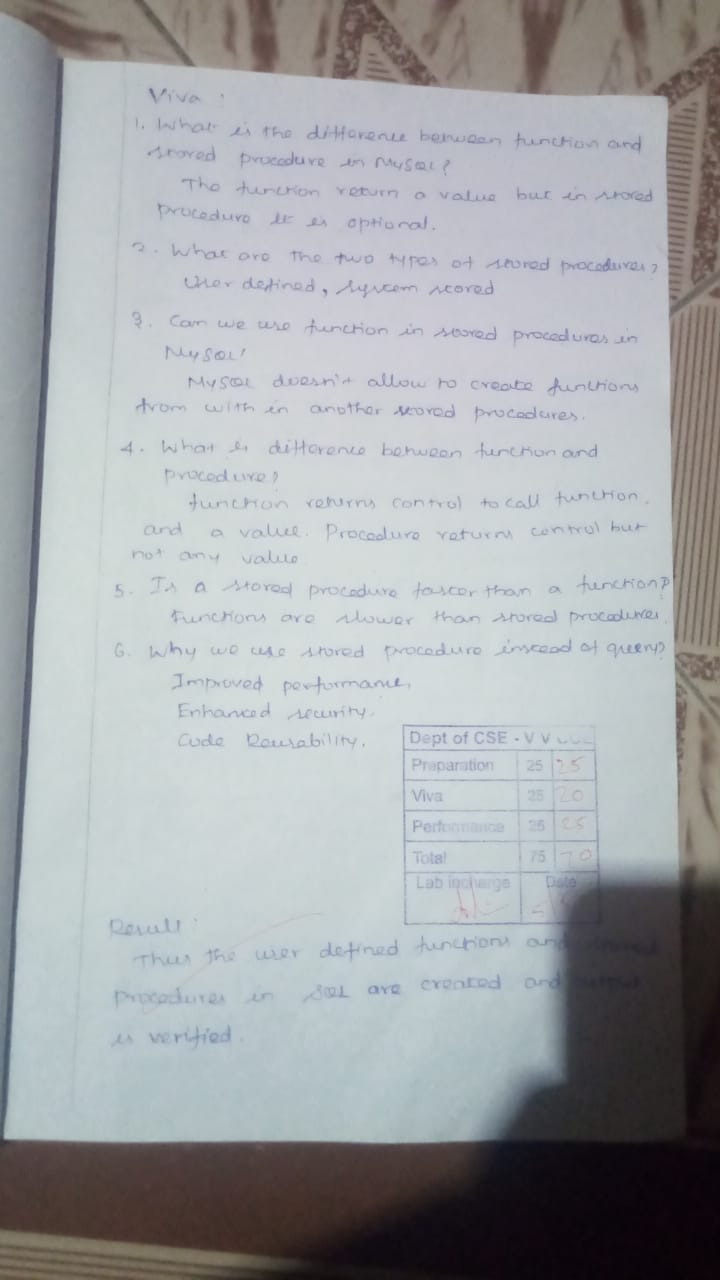 Viva :
1. What is the difference between function and
stored procedure in MySQL?
The function return a value but in stored
procedure it is optional.
2. What are the two types of stored procedures?
User defined, system stored
3. Can we use function in stored procedures in
MySQL?
MySQL doesn't allow to create functions
from with in another stored procedures.
4. What is difference between function and
procedure?
function returns control to call function.
and a value. Procedure returns control but
not any value
5. Is a stored procedure faster than a function?
Functions are slower than stored procedures.
6. Why we use stored procedure instead of query?
Improved performance,
Enhanced security.
Code Reusability.
Dept of CSE - V V
Preparation 25 25
Viva 25 20
Performance 25 25
Total 75 70
Lab incharge Date
Result :
Thus the user defined functions and stored
procedures in SQL are created and output
is verified.